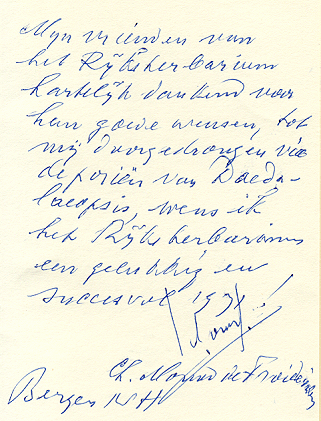 Mijn vrienden van
het Rijksherbarium
hartelijk dankend voor
hun goede wensen, tot
mij doorgedrongen via
de poriën van Daeda-
laeopsis, wens ik
het Rijksherbarium
een gelukkig en
succesvol 19
Bergen NH